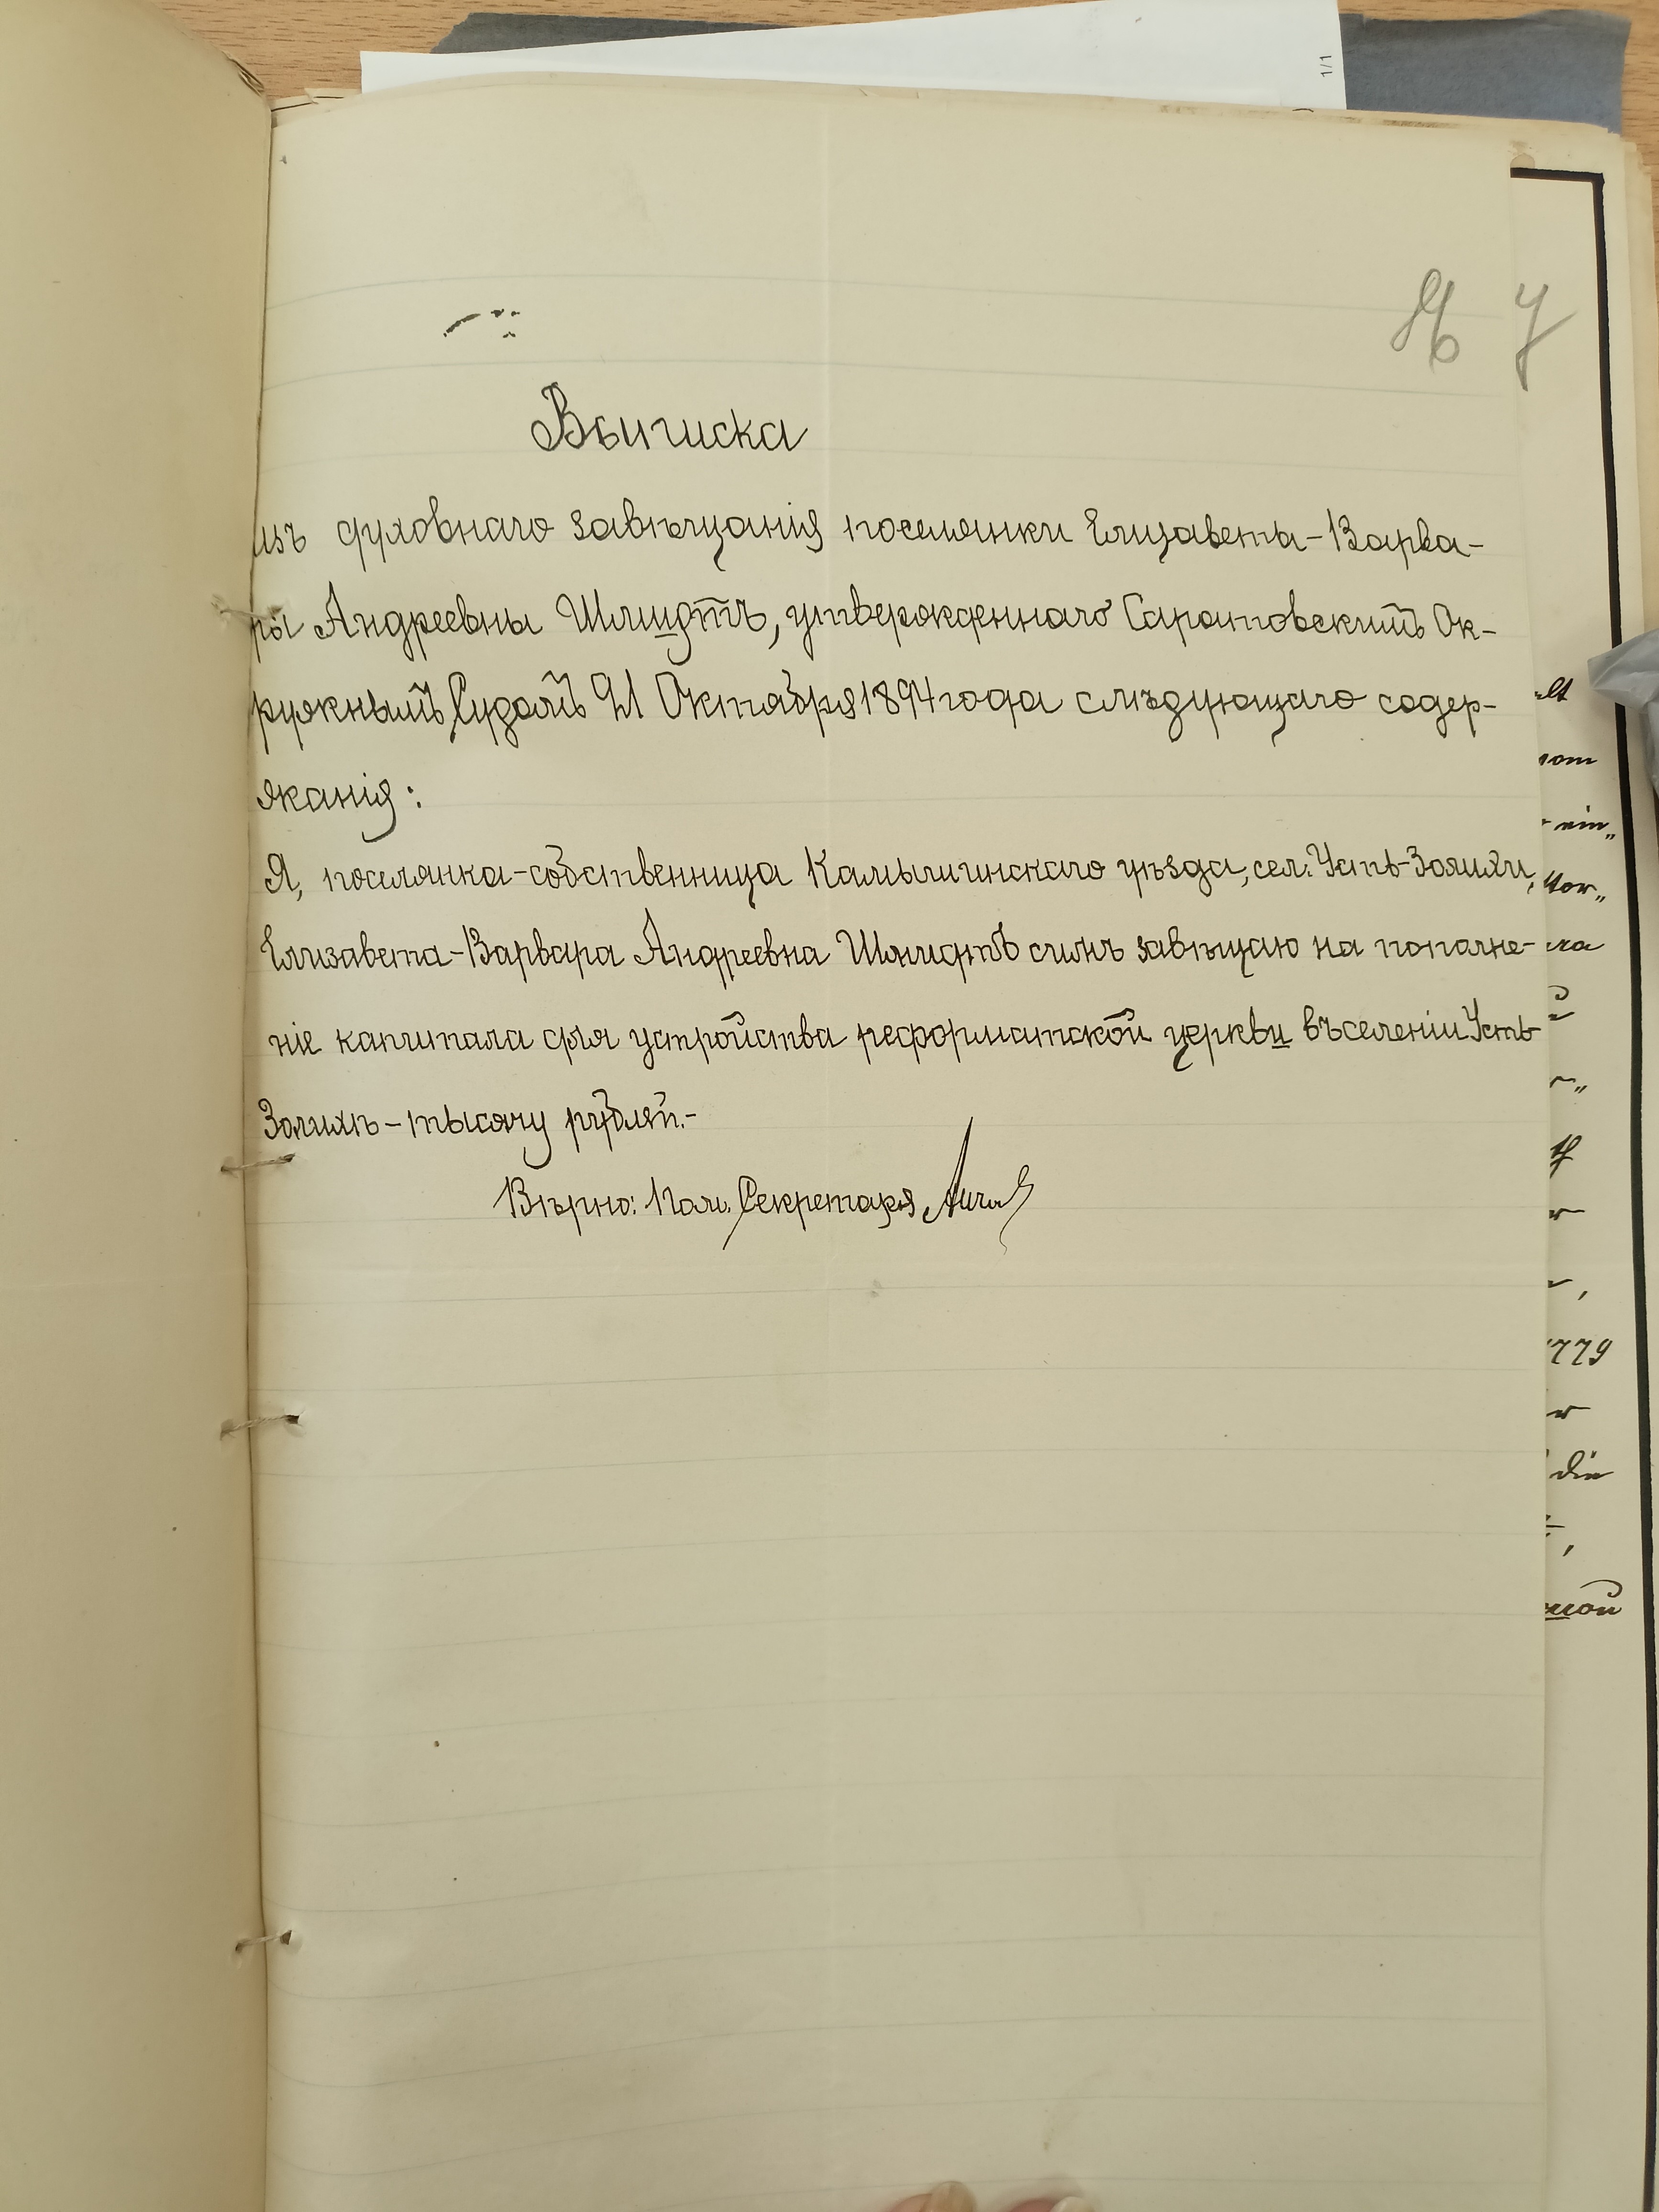 1/1
7
Выписка
изъ духовнаго завѣщанія поселянки Елизаветы-Варва-
ры Андреевны Шмидтъ, утвержденнаго Саратовскимъ Ок-
ружнымъ Судомъ 21 Октября 1894 года слѣдующаго содер-
жанія:
Я, поселянка-собственница Камышинскаго уѣзда, сел. Усть-Золихи,
Елизавета-Варвара Андреевна Шмидтъ симъ завѣщаю на пополне-
ніе капитала для устройства реформатской церкви въ селеніи Усть-
Золихѣ - тысячу рублей.-
Вѣрно: Пом. Секретаря
1779
die